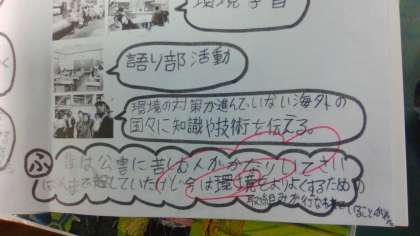 環境学習
語り部活動
環境の対策が進んでいない海外の
国々に知識や技術を伝える。
ふ
昔は公害に苦しむ人がかなりいてさい
していたけど今は環境をよりよくするための
取組みが行なわれていることが